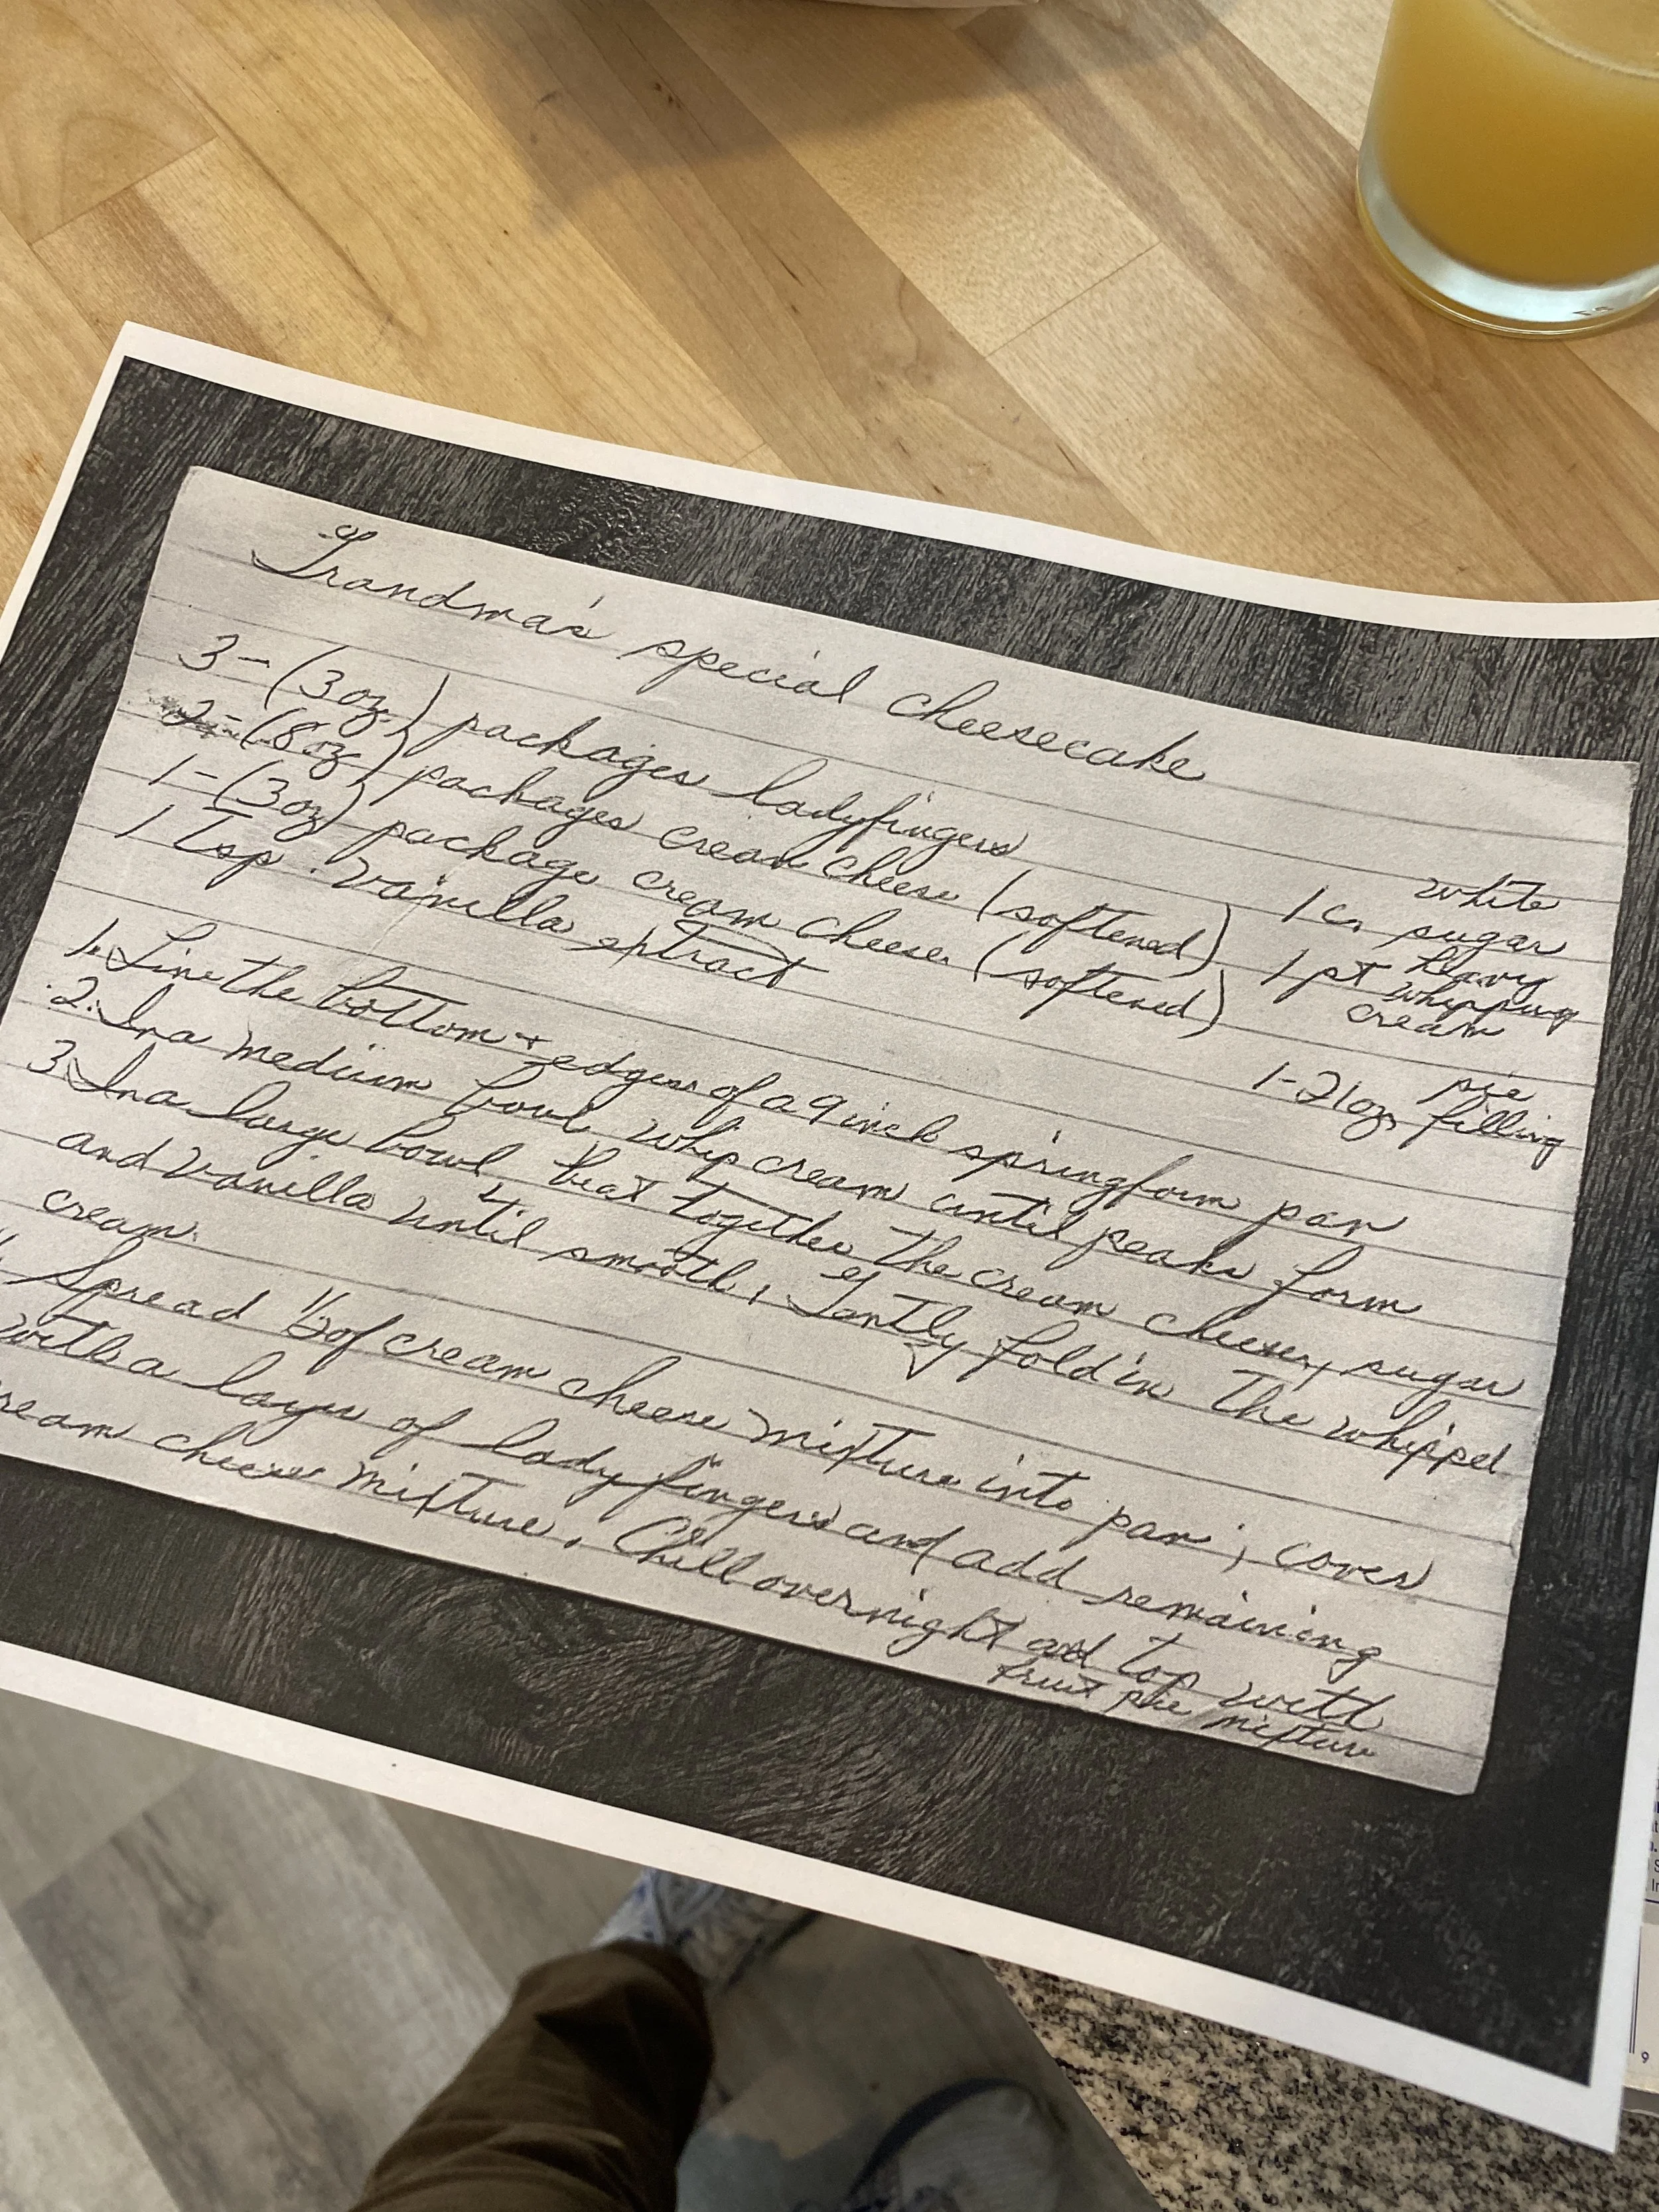 Grandma's special cheesecake
3 - (3oz.) packages ladyfingers
2 - (8oz) packages cream cheese (softened)
1 - (3oz) package cream cheese (softened)
1 Tsp. vanilla extract
1 c. white sugar
1 pt heavy whipping cream
1 - 21oz. pie filling
1. Line the bottom + edges of a 9 inch springform pan
2. In a medium bowl, whip cream until peaks form
3. In a large bowl, beat together the cream cheese, sugar
and vanilla until smooth, Gently fold in the whipped
cream.
Spread 1/2 of cream cheese mixture into pan; cover
with a layer of ladyfingers and add remaining
cream cheese mixture. Chill overnight and top with
fruit pie mixture